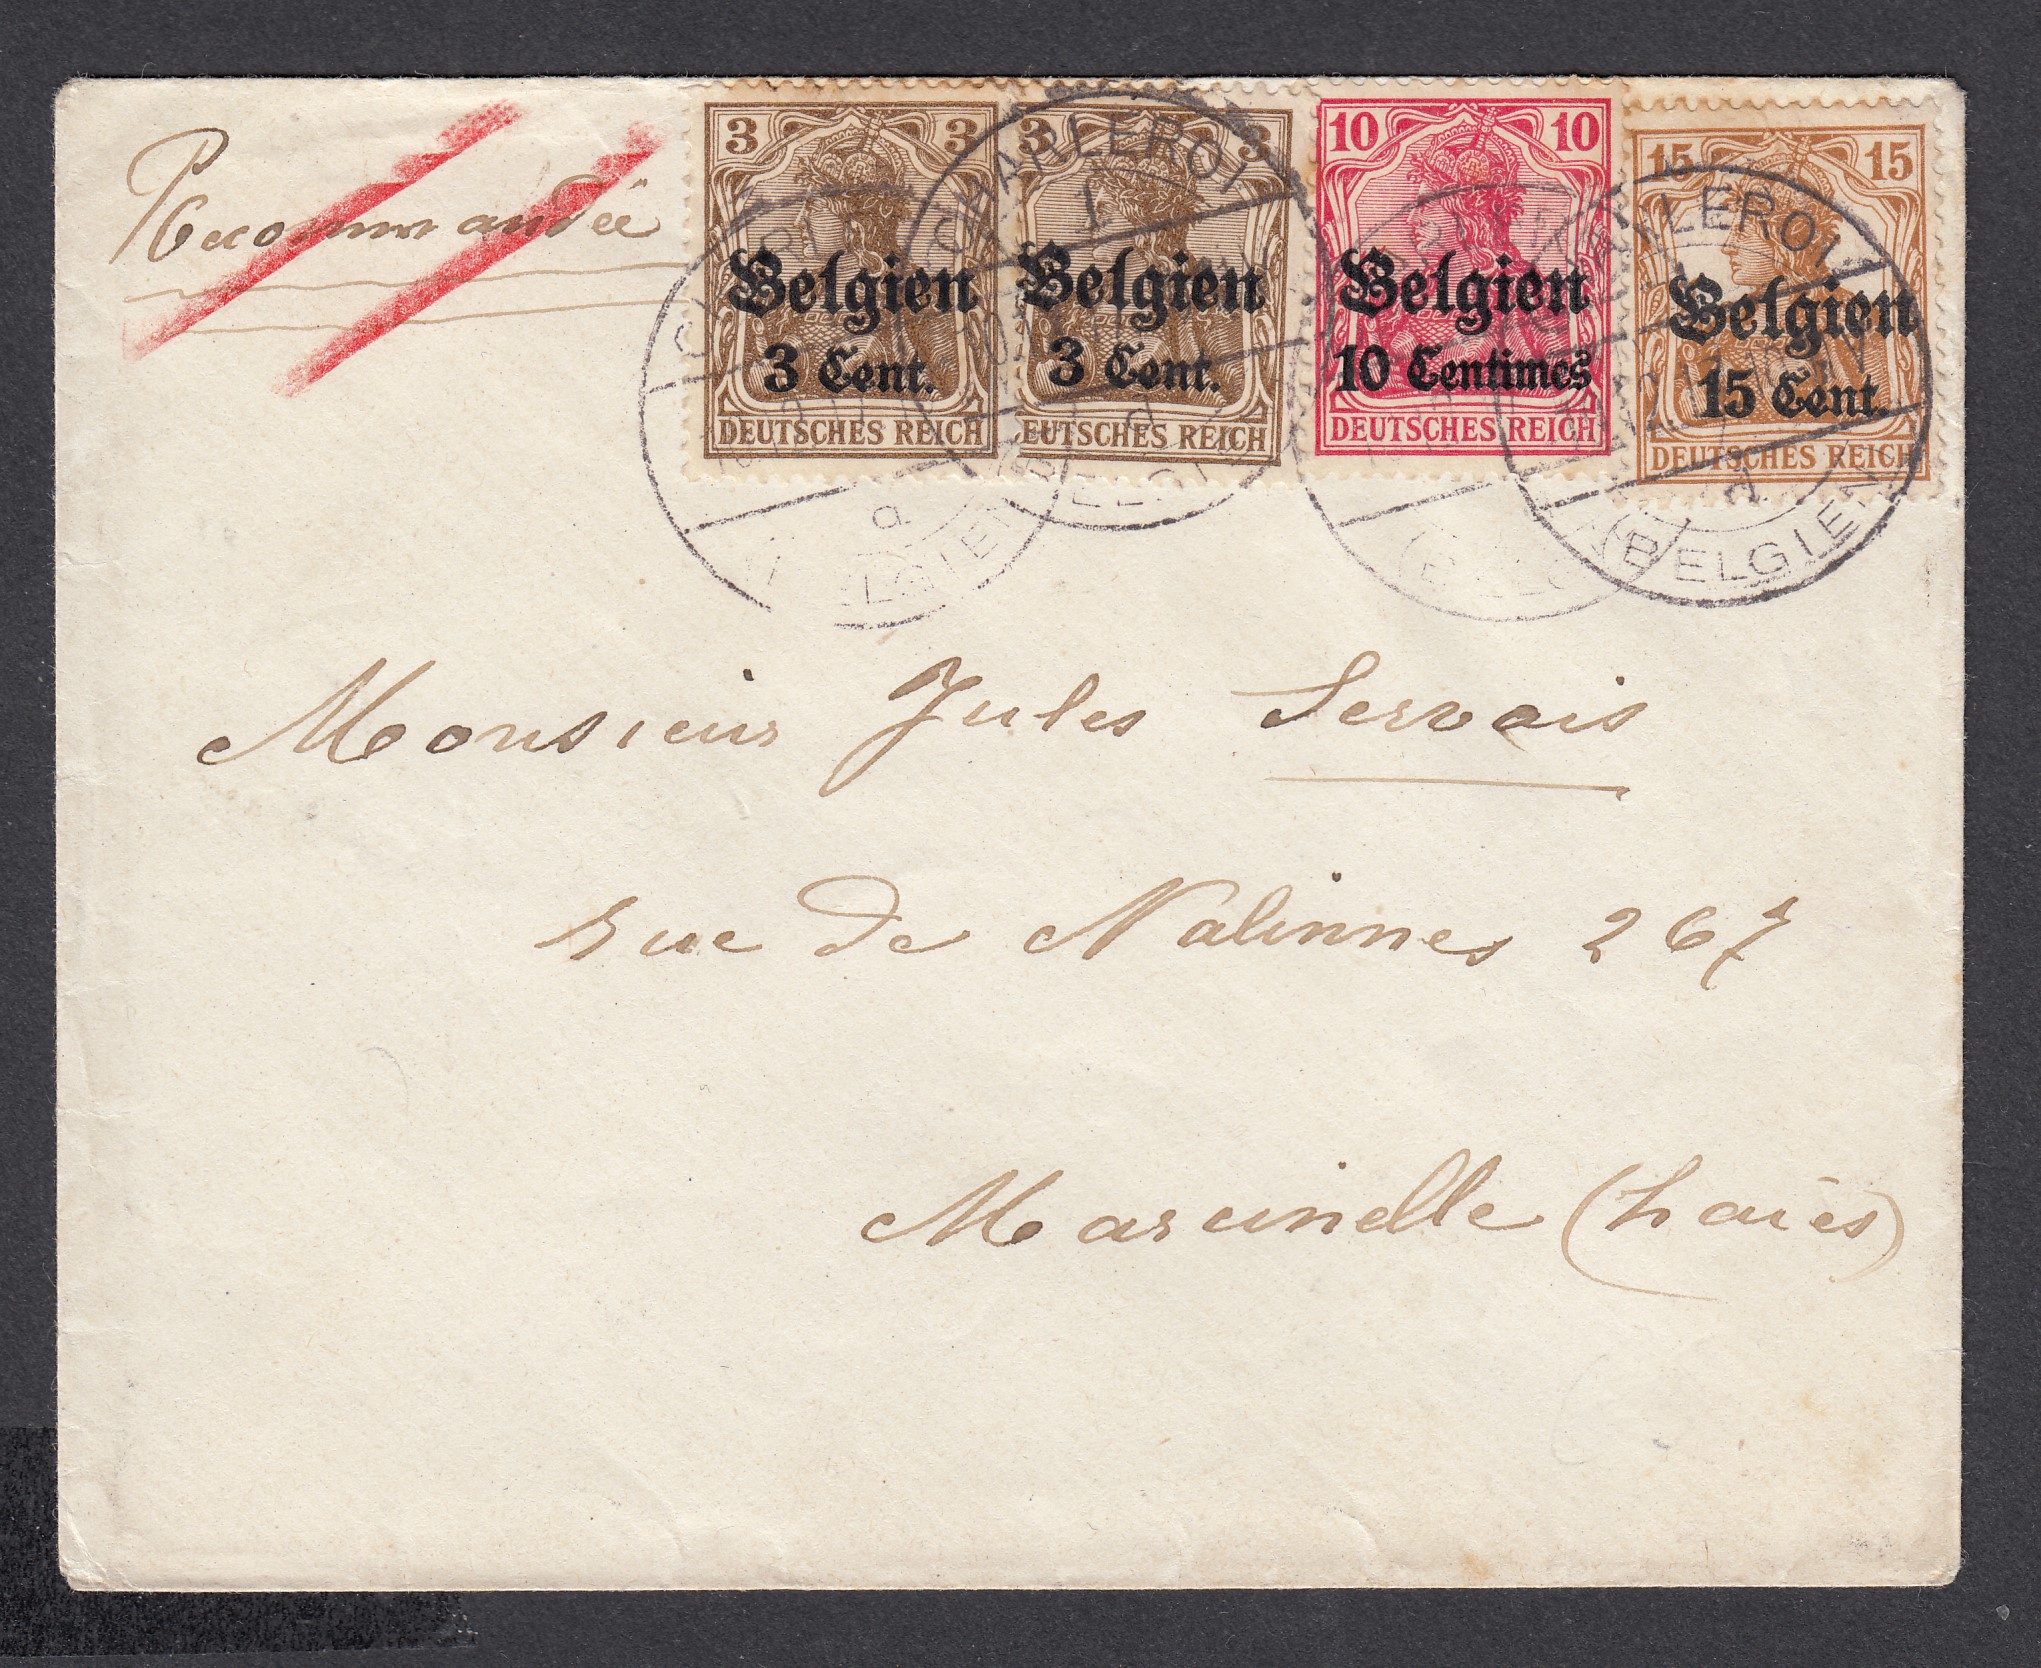 Recommandée
3 3
Belgien
3 Cent.
DEUTSCHES REICH
3 3
Belgien
3 Cent.
DEUTSCHES REICH
10 10
Belgien
10 Centimes
DEUTSCHES REICH
15 15
Belgien
15 Cent.
DEUTSCHES REICH
CHARLEROI
d
BELGIEN
CHARLEROI 1
d
(BELGIEN
Monsieur Jules Servais
rue de Nalinnes 267
Marcinelle (haies)